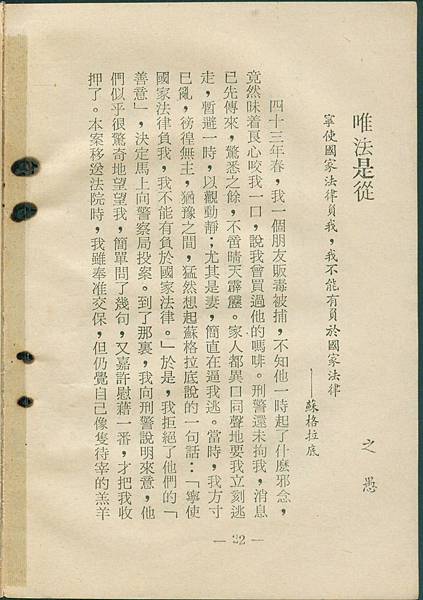 唯法是從
寧使國家法律負我，我不能有負於國家法律
——蘇格拉底
之愚
四十三年春，我一個朋友販毒被捕，不知他一時起了什麼邪念，
竟然昧着良心咬我一口，說我曾買過他的嗎啡。刑警還未拘我，消息
已先傳來，驚悉之餘，不啻晴天霹靂。家人都異口同聲地要我立刻逃
走，暫避一時，以觀動靜；尤其是妻，簡直在逼我逃。當時，我方寸
已亂，徬徨無主，猶豫之間，猛然想起蘇格拉底說的一句話：「寧使
國家法律負我，我不能有負於國家法律。」於是，我拒絕了他們的「
善意」，決定馬上向警察局投案。到了那裏，我向刑警說明來意，他
們似乎很驚奇地望望我，簡單問了幾句，又嘉許慰藉一番，才把我收
押了。本案移送法院時，我雖奉准交保，但仍覺自己像隻待宰的羔羊
— 32 —